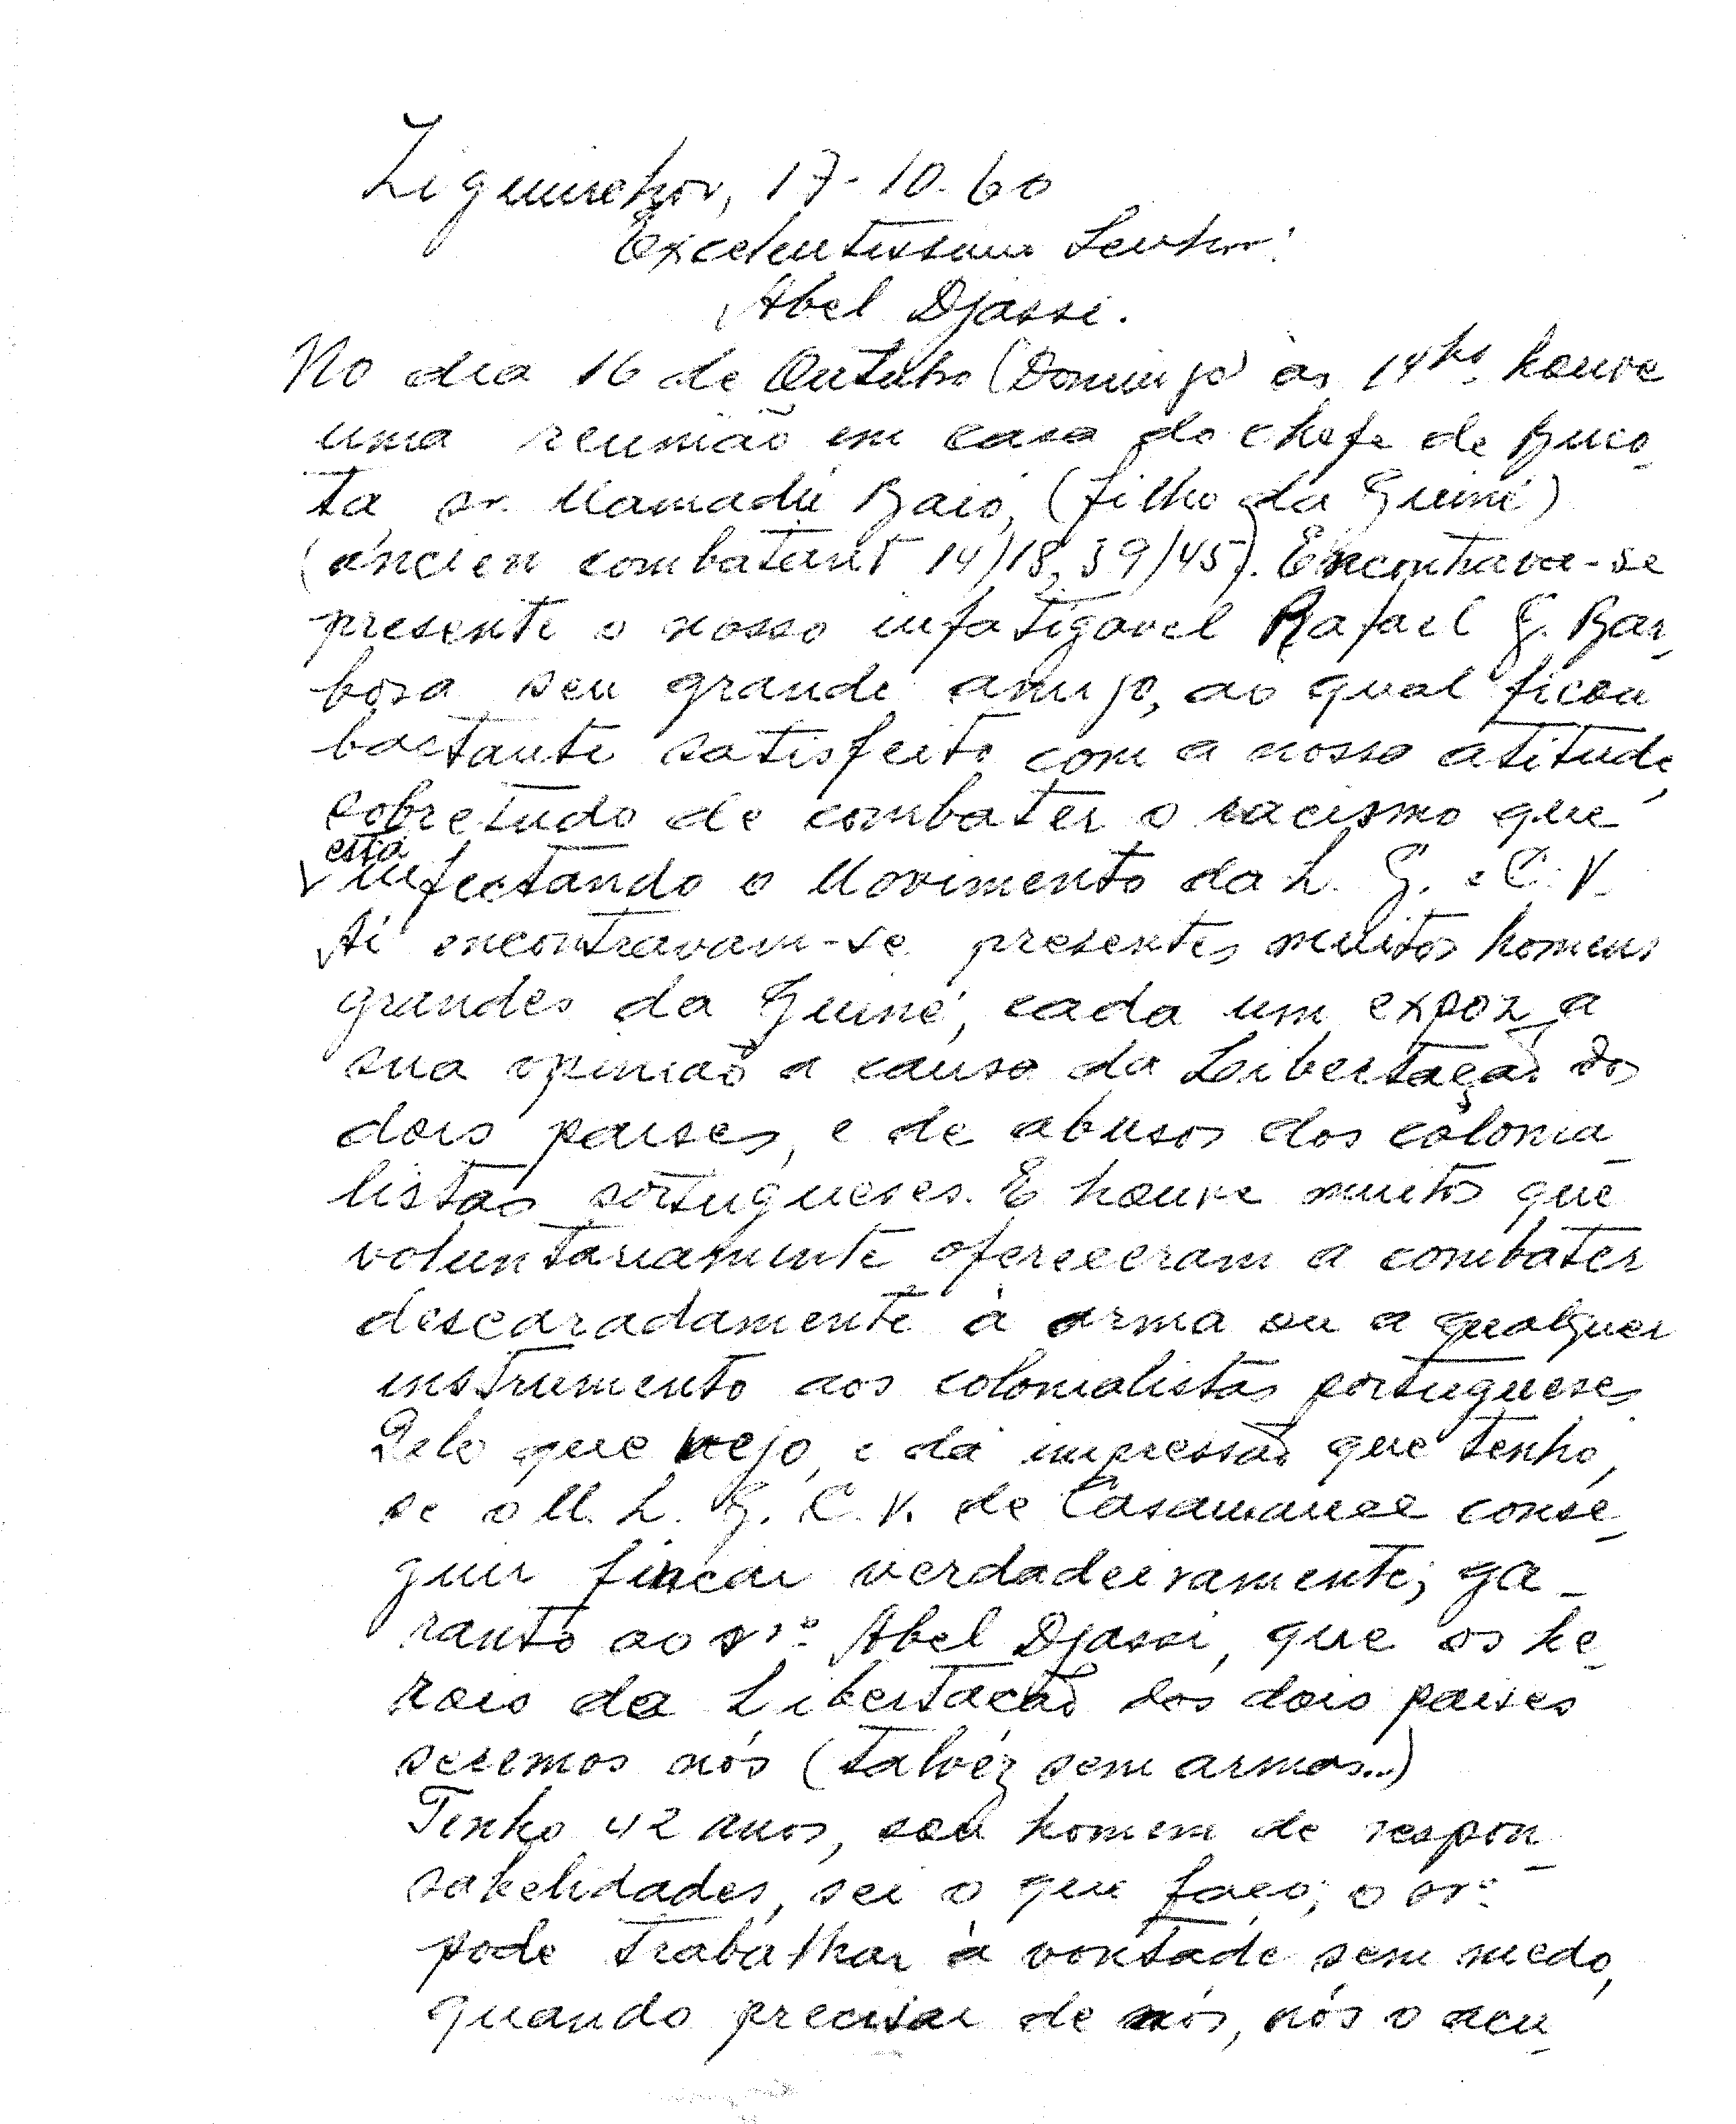 Ziguinchor, 17-10-60
Excelentissimo Senhor:
Abel Djassi.
No dia 16 de Outubro (Domingo) às 14hs. houve
uma reunião em casa do chefe de Buco_
ta, sr. Mamadú Baió, (filho da Guiné)
(áncien combatant 14/18, 39/45). Encontrava-se
presente o nosso infatigavel Rafael G. Bar_
bosa seu grande amigo, ao qual ficou
bastante satisfeito com a nossa atitude,
sobretudo de combater o racismo que
está
infectando o Movimento da L. G. e C. V.
Aí encontravam-se presentes muitos homens
grandes da Guiné, cada um expoz a
sua opinião a causa da Libertação dos
dois paises, e de abusos dos colonia_
listas portugueses. E houve muitos que
voluntariamente ofereceram a combater
descaradamente à arma ou a qualquer
instrumento aos colonialistas portugueses
Pelo que vejo, e da impressão que tenho,
se o M. L. G. C. V. de Casamance conse_
guir fincar verdadeiramente; ga_
ranto ao srº Abel Djassi, que os he_
rois da Libertação dos dois paises
seremos nós (talvéz sem armas...)
Tenho 42 anos, sou homem de respon_
sabelidades, sei o que faço; o srº
pode trabalhar à vontade sem medo,
quando precisar de nós, nós o acu_